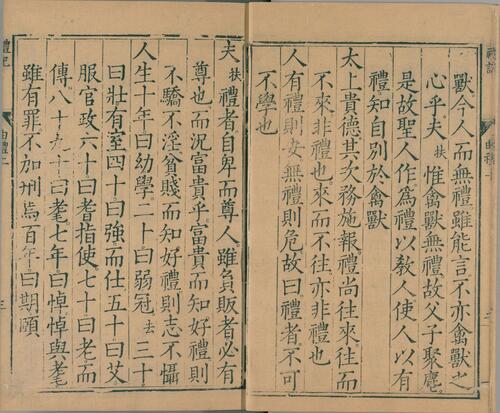 獸今人而無禮雖能言不亦禽獸之
心乎夫扶惟禽獸無禮故父子聚麀
是故聖人作爲禮以敎人使人以有
禮知自別於禽獸
太上貴德其次務施報禮尚往來往而
不來非禮也來而不往亦非禮也
人有禮則安無禮則危故曰禮者不可
不學也
夫扶禮者自卑而尊人雖負販者必有
尊也而況富貴乎富貴而知好禮則
不驕不淫貧賤而知好禮則志不懾
人生十年曰幼學二十曰弱冠去三十
曰壯有室四十曰強而仕五十曰艾
服官政六十曰耆指使七十曰老而
傳八十九十曰耄七年曰悼悼與耄
雖有罪不加刑焉百年曰期頤
禮記
曲禮上
三